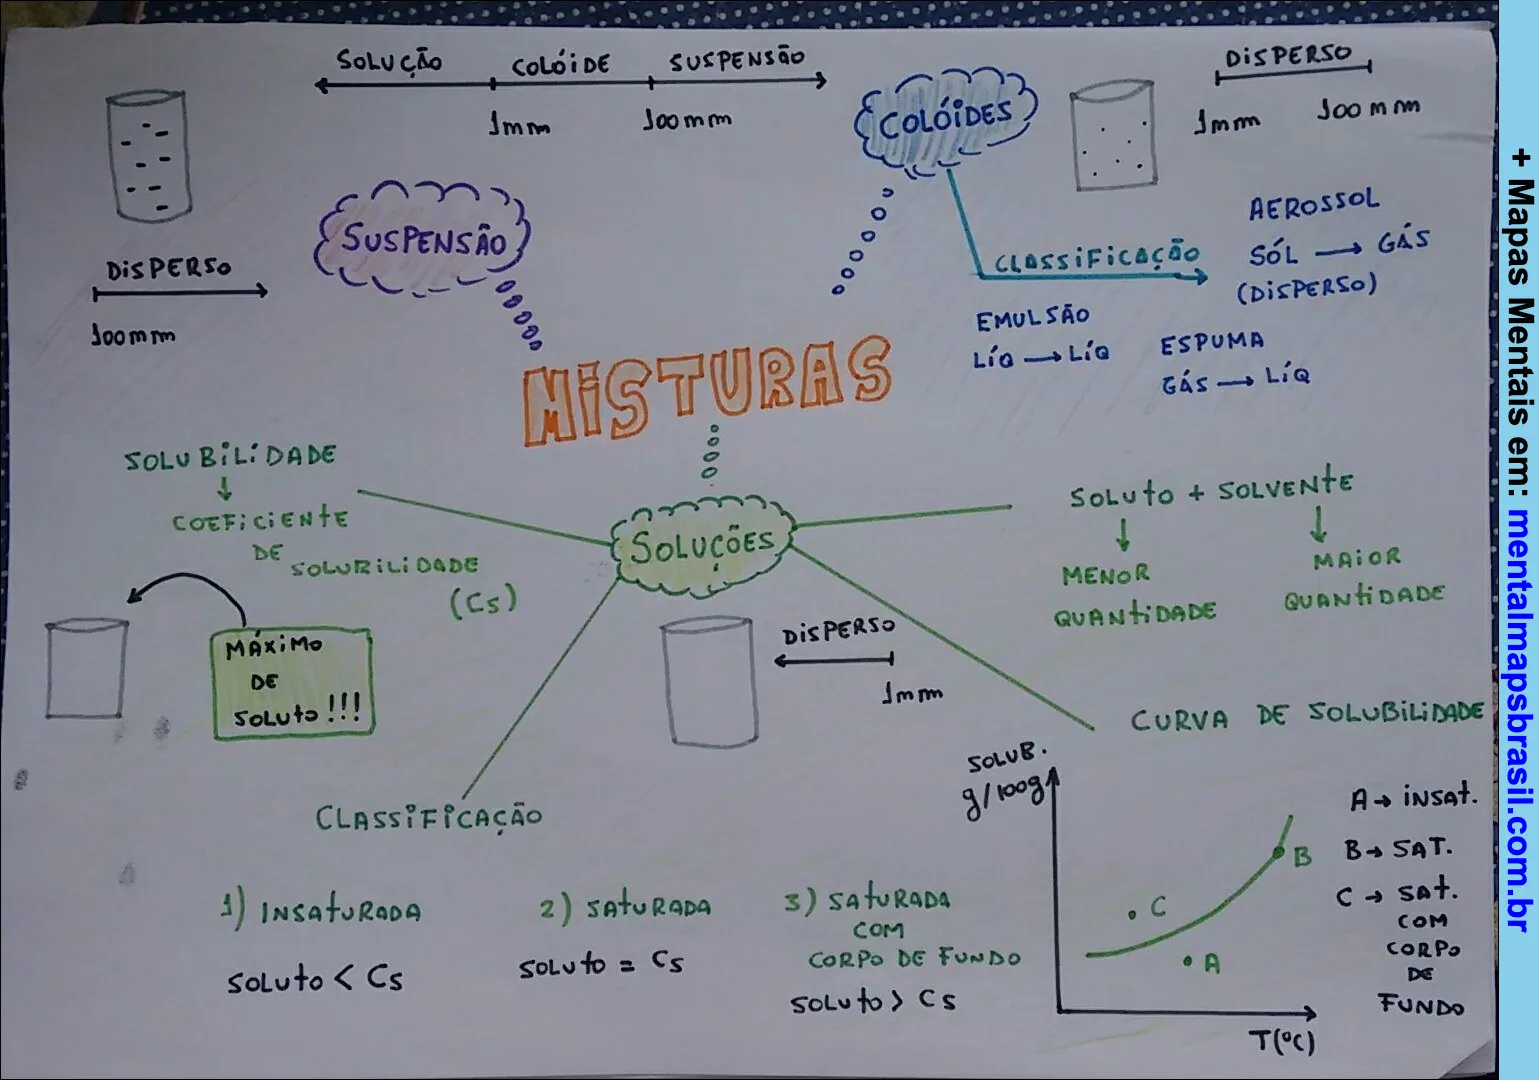 SOLUÇÃO COLÓIDE SUSPENSÃO
1mm 100mm
COLÓIDES
DISPERSO
1mm 100mm
SUSPENSÃO
DISPERSO
100mm
CLASSIFICAÇÃO
AEROSSOL
SÓL → GÁS
(DISPERSO)
EMULSÃO
LÍQ → LÍQ
ESPUMA
GÁS → LÍQ
MISTURAS
SOLUBILIDADE
↓
COEFICIENTE
DE
SOLUBILIDADE
(Cs)
MÁXIMO
DE
SOLUTO!!!
SOLUÇÕES
DISPERSO
1mm
SOLUTO + SOLVENTE
↓ ↓
MENOR
QUANTIDADE
MAIOR
QUANTIDADE
CLASSIFICAÇÃO
1) INSATURADA
SOLUTO < Cs
2) SATURADA
SOLUTO = Cs
3) SATURADA
COM
CORPO DE FUNDO
SOLUTO > Cs
CURVA DE SOLUBILIDADE
SOLUB.
g/100g
B
C
A
T(ºC)
A → INSAT.
B → SAT.
C → SAT.
COM
CORPO
DE
FUNDO
+ Mapas Mentais em: mentalmapsbrasil.com.br